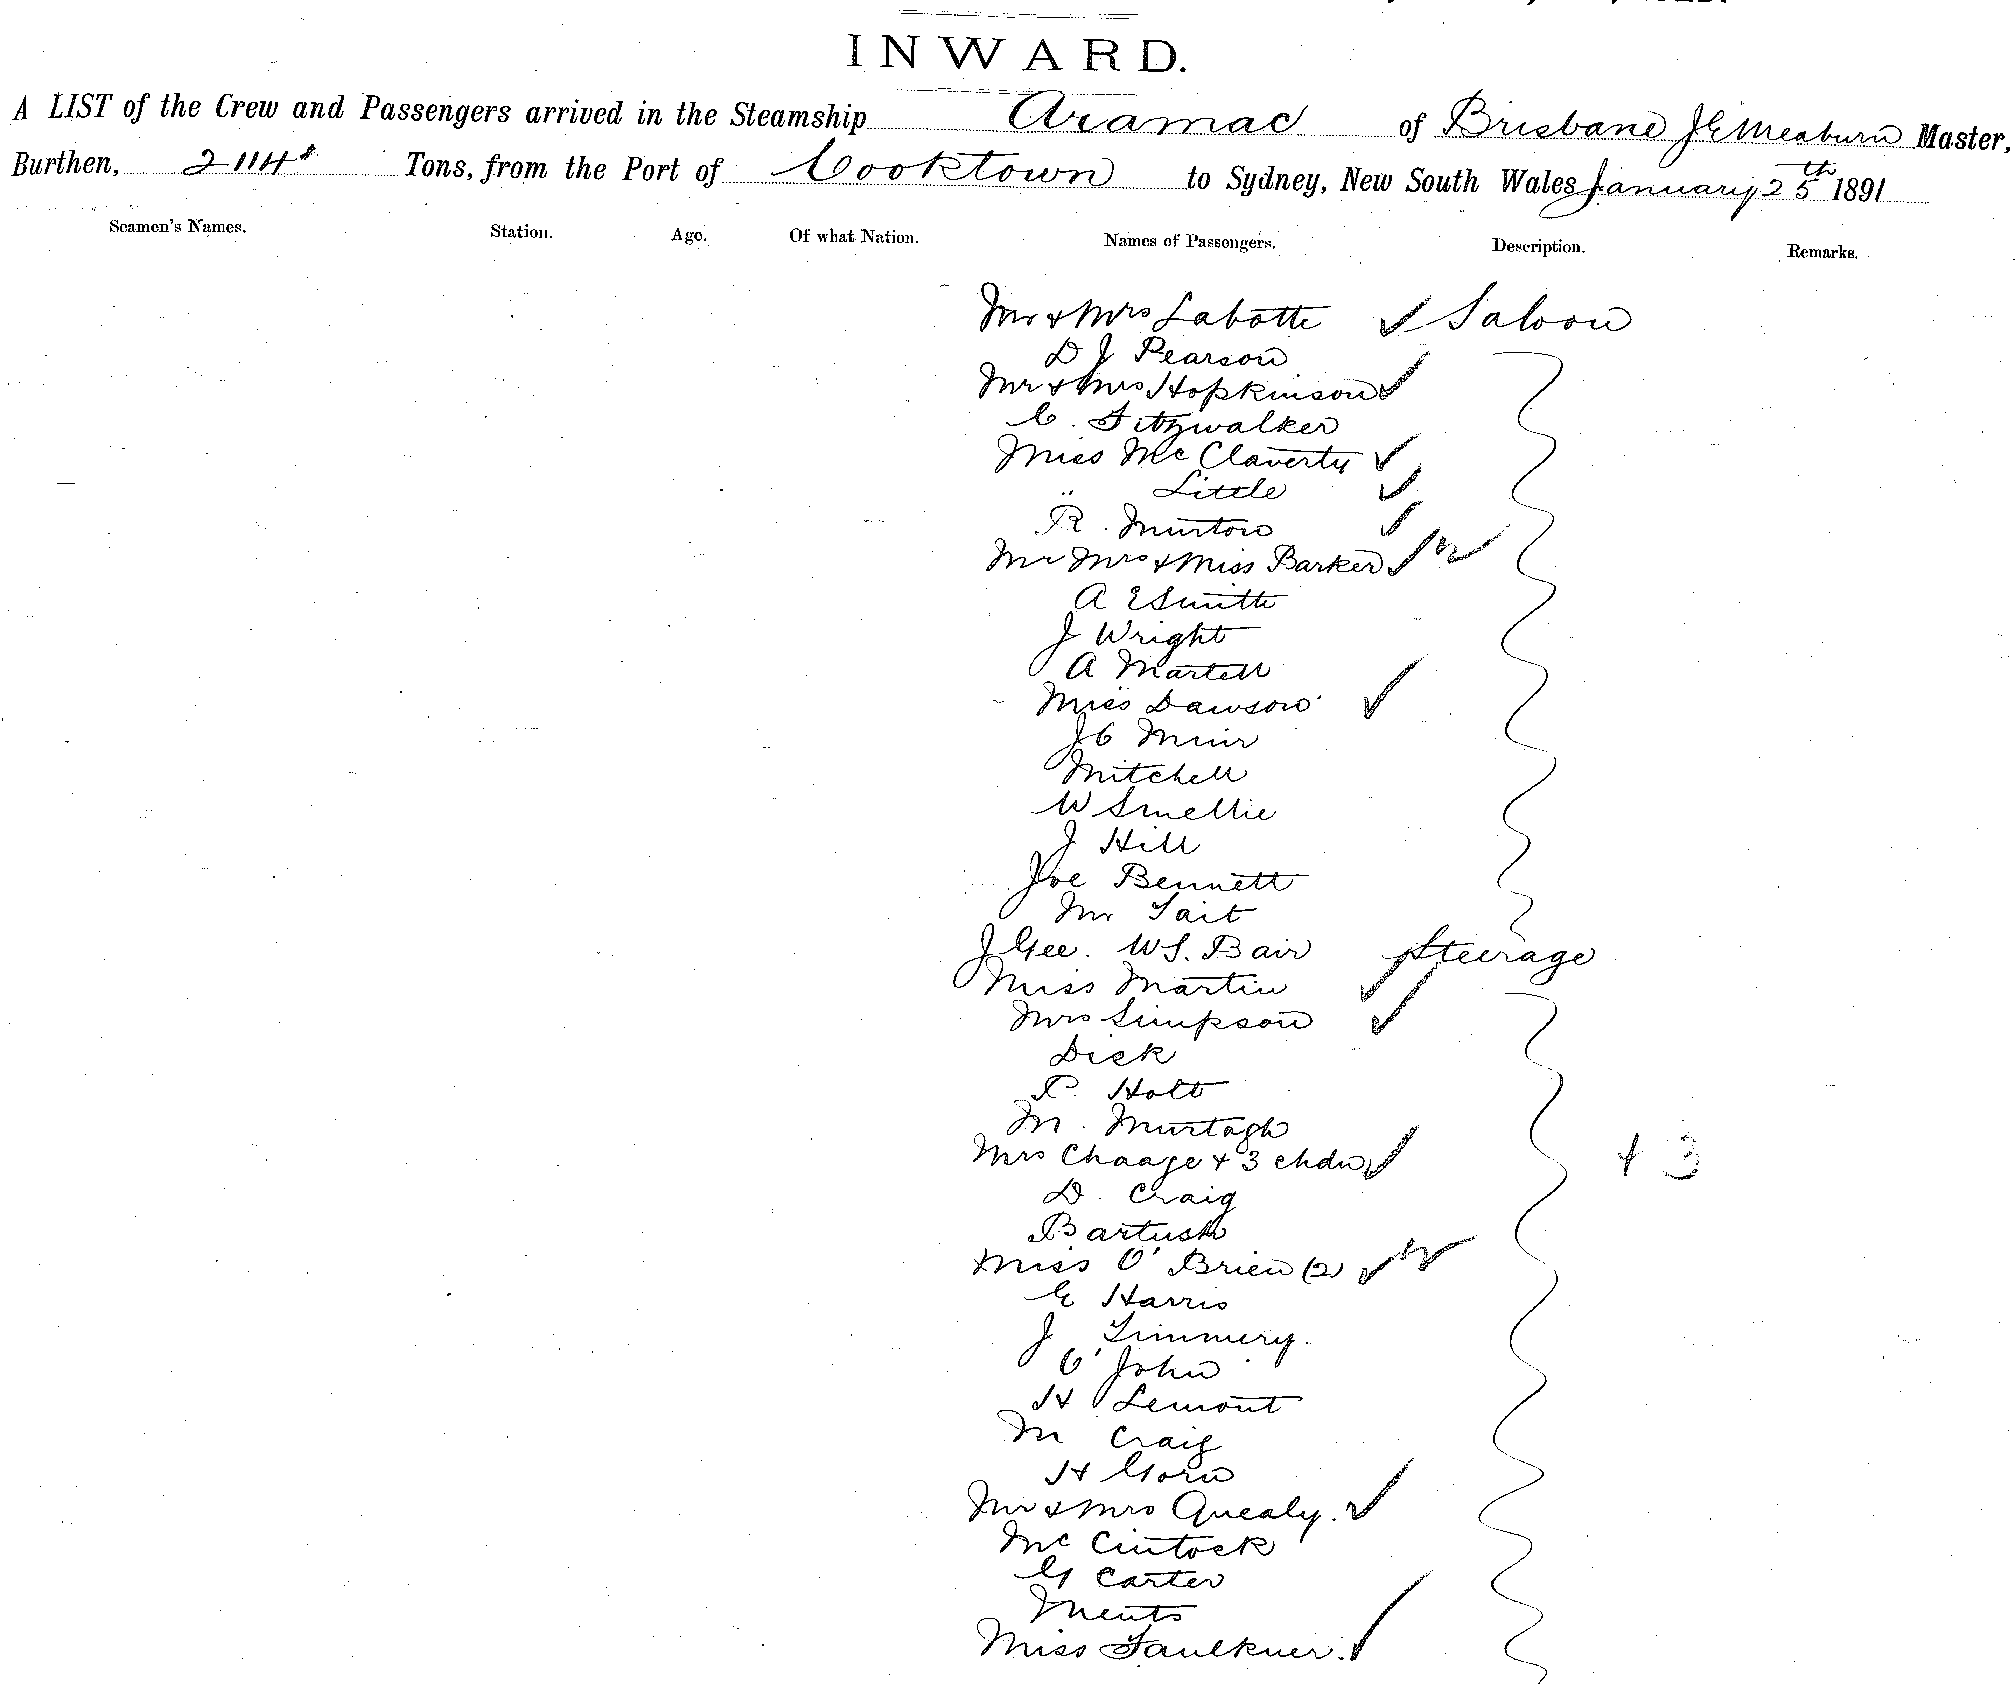 INWARD.
A LIST of the Crew and Passengers arrived in the Steamship Aramac of Brisbane J E Meaburn Master,
Burthen, 2114 Tons, from the Port of Cooktown to Sydney, New South Wales January 25th 1891
Seamen's Names. Station. Age. Of what Nation. Names of Passengers. Description. Remarks.
Mr & Mrs Labotte ✓ Saloon
D J Pearson
Mr & Mrs Hopkinson ✓
C. Fitzwalker
Miss McClaverty ✓
" Little ✓
R. Murton ✓
Mr Mrs & Miss Barker ✓
A E Smith
J Wright
A Martell
Miss Dawson ✓
J C Muir
Mitchell
W Smellie
J Hill
Joe Bennett
Mr Tait
J Gee. W S. Bair Steerage
Miss Martin ✓
Mrs Simpson ✓
Dick
P. Holt
M. Murtagh
Mrs Chaage & 3 chdn ✓ + 3
D. Craig
Bartush
Miss O'Brien (2) ✓
G Harris
J Timmery.
O'John
H Lemont
M Craig
H Gorn
Mr & Mrs Quealy. ✓
McCintock
G Carter
Ments
Miss Faulkner. ✓